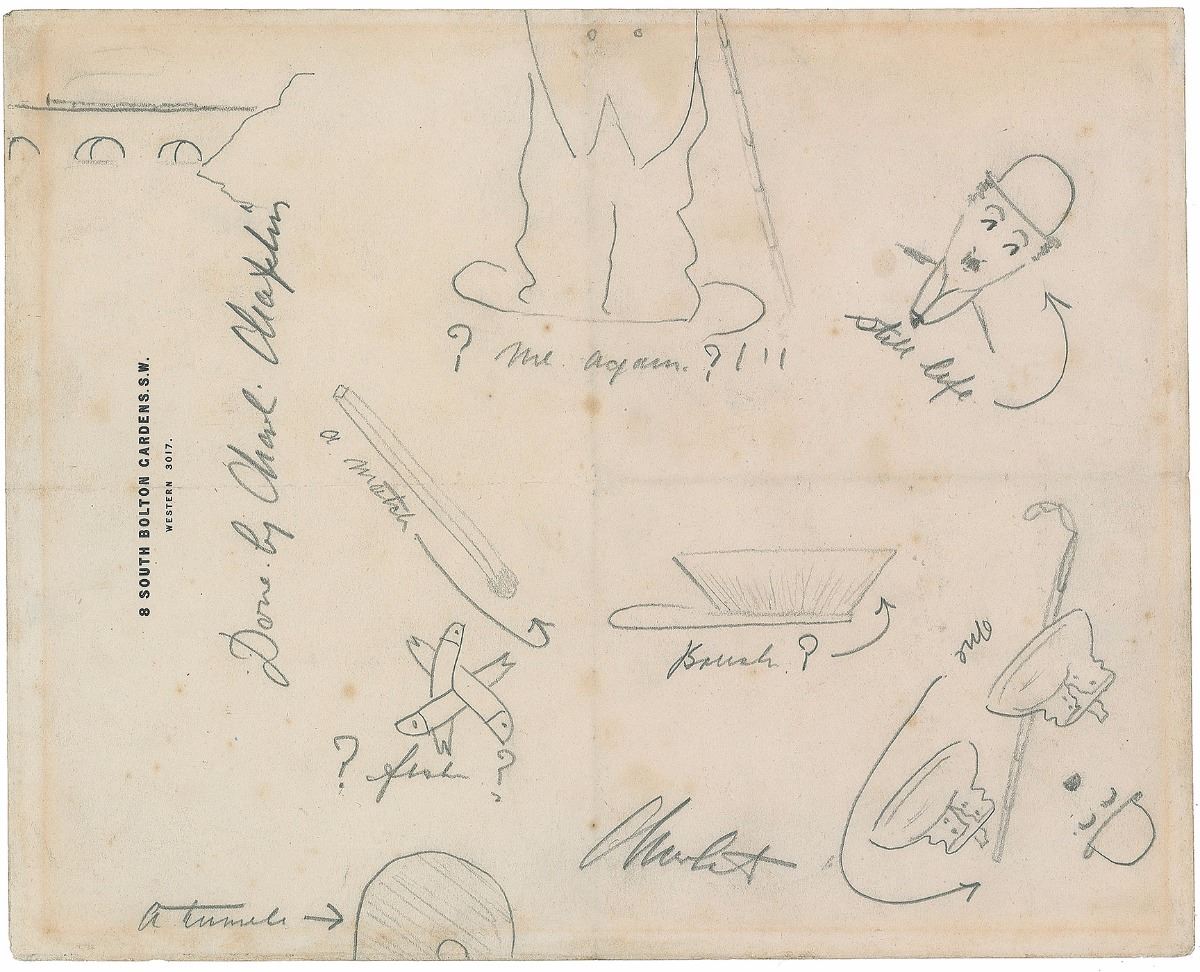 8 SOUTH BOLTON GARDENS. S.W.
WESTERN 3017.
Done. by Charl. Chaplin
? Me. again. ? ! ! !
Still life
a match
Brush. ?
Me
? fish ?
Charlot
A tunnel